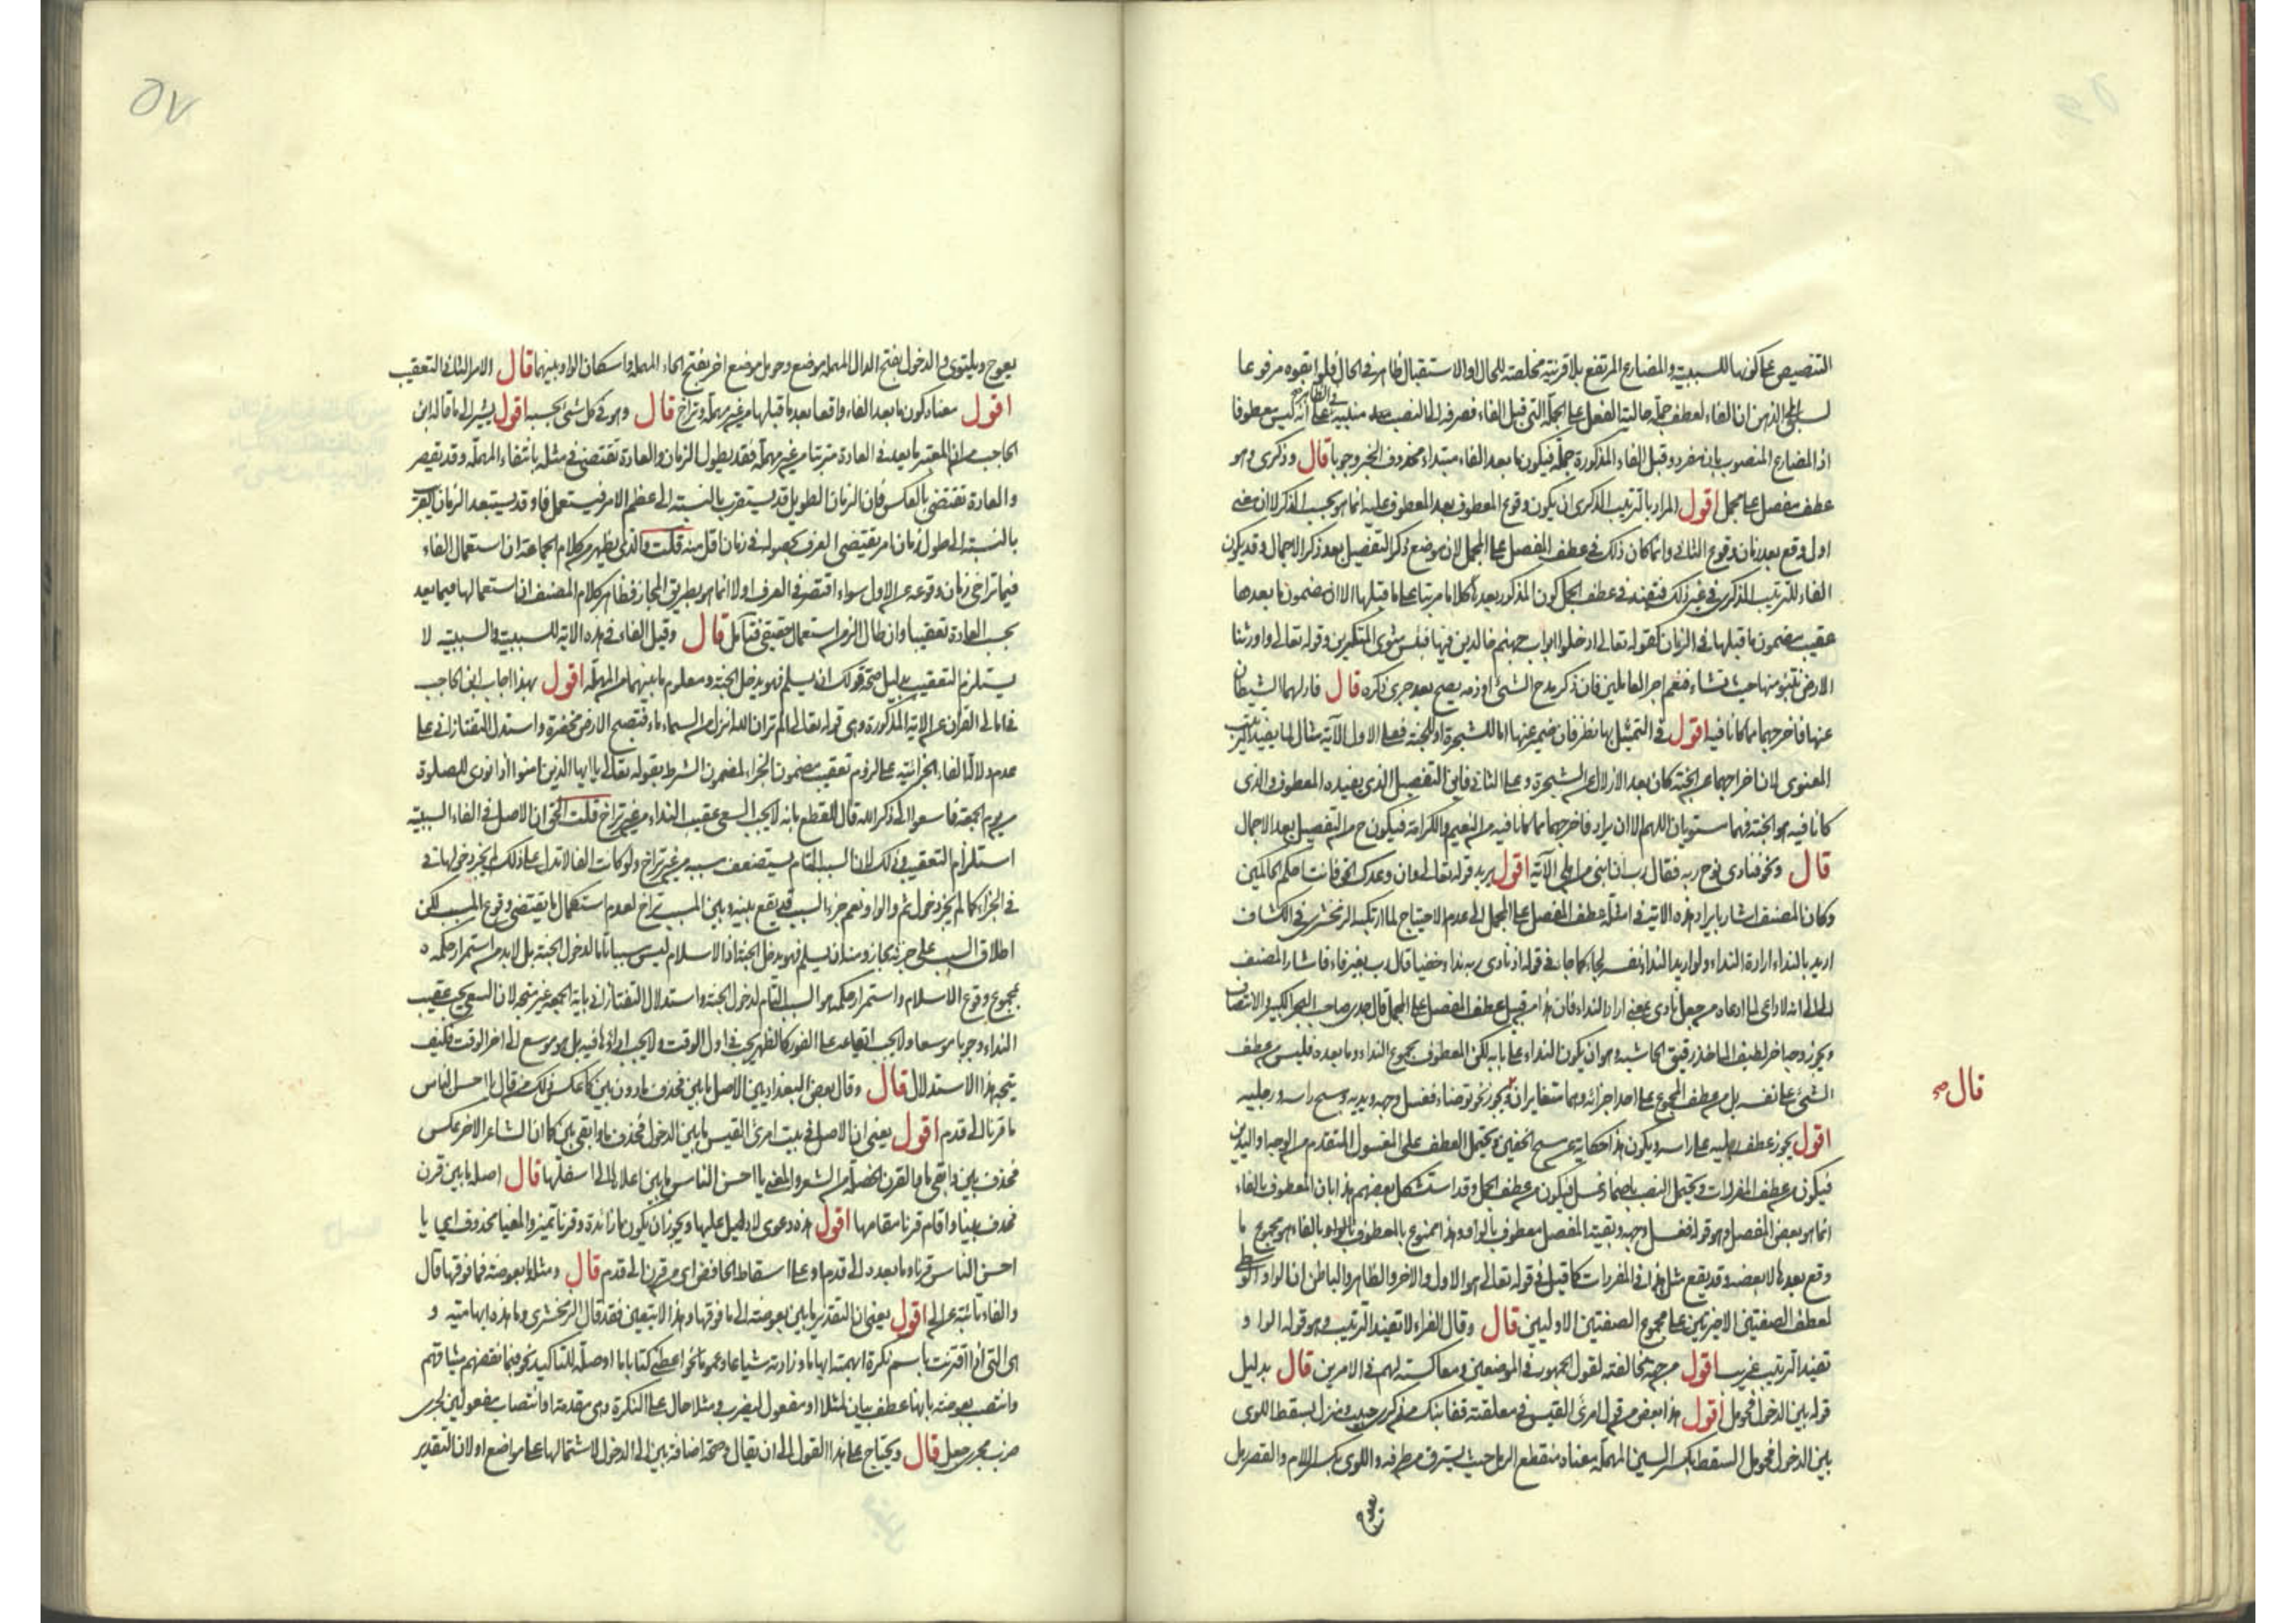 التنصيص على كونها للسببية والمضارع المرتفع بلا قرينة مخلصة للحال او الاستقبال ظاهر في الحال فلو ابقوه مرفوعا
لسبق الى الذهن ان الفاء لعطف جملة حالية الفعل على الجملة التي قبل الفاء فصرفه الى النصب منبه في الظاهر على انه ليس معطوفا
اذ المضارع المنصوب بان مفرد وقبل الفاء المذكورة جملة فيكون ما بعد الفاء مبتداء محذوف الخبر وجوبا قال وذكرى وهو
عطف مفصل على مجمل اقول المراد بالترتيب الذكرى ان يكون وقوع المعطوف بعد المعطوف عليه انما هو بحسب الذكر لا ان معنى
اول وقع بعد زمان وقوع الثاني وانما كان ذلك في عطف المفصل على المجمل لان موضع ذكر التفصيل بعد ذكر الاجمال وقد يكون
الفاء للترتيب الذكرى في غير ذلك فتفيد في عطف الجمل كون المذكور بعدها كلاما مرتبا على ما قبلها لا ان مضمون ما بعدها
عقيب مضمون ما قبلها في الزمان كقوله تعالى ادخلوا ابواب جهنم خالدين فيها فبئس مثوى المتكبرين وقوله تعالى واورثنا
الارض نتبوء منها حيث نشاء فنعم اجر العاملين فان ذكر مدح الشئ او ذمه يصح بعد جرى ذكره قال فازلهما الشيطان
عنها فاخرجهما مما كانا فيه اقول في التمثيل بها نظر فان ضمير عنها اما للشجرة او للجنة فعلى الاول الآية مثال لما يفيد الترتيب
المعنوى لان اخراجهما عن الجنة كان بعد الازلال عن الشجرة وعلى الثاني فاين التفصيل الذي يفيده المعطوف والذى
كانا فيه هو الجنة فهما مستويان اللهم الا ان يراد فاخرجهما مما كانا فيه من النعيم والكرامة فيكون ح من التفصيل بعد الاجمال
قال ونحو فنادى نوح ربه فقال رب ان ابني من اهلي الآية اقول يريد قوله تعالى وان وعدك الحق وانت احكم الحاكمين
وكان المصنف اشار بايراد هذه الاية في امثلة عطف المفصل على المجمل الى عدم الاحتياج لما ارتكبه الزمخشرى في الكشاف
اريد بالنداء ارادة النداء ولو اريد النداء نفسه لجاء كما جاء في قوله اذ نادى ربه نداء خفيا قال رب بغير فاء فاشار المصنف
الى انه لا داعى لما ادعاه من جعل نادى بمعنى اراد النداء فان هذا من قبيل عطف المفصل على المجمل قال جدى صاحب البحر الكبير والانتصاف
ويجوز وجها اخر لطيف الماخذ رقيق الحاشية وهو ان يكون النداء على بابه لكن المعطوف مجموع النداء وما بعده فليس من عطف
الشئ على نفسه بل من عطف المجموع على احد اجزائه وهما متغايران ونحو توضاء فغسل وجهه ويديه ومسح راسه ورجليه
اقول يجوز عطف رجليه على راسه ويكون هذا حكاية عن مسح الخفين ويحتمل العطف على المغسول المتقدم من الوجه واليدين
فيكون من عطف المفردات ويحتمل النصب باضمار غسل فيكون من عطف الجمل وقد استشكل بعضهم هذا بان المعطوف بالفاء
انما هو بعض المفصل وهو قوله فغسل وجهه وبقية المفصل معطوف بالواو وهذا ممنوع بل المعطوف بالفاء هو مجموع ما
وقع بعدها لا بعضه وقد يقع مثل هذا في المفردات كما قيل في قوله تعالى هو الاول والاخر والظاهر والباطن ان الواو الوسطى
لعطف الصفتين الاخيرتين على مجموع الصفتين الاوليين قال وقال الفراء لا تفيد الترتيب وهو قوله الواو
تفيد الترتيب غريب اقول من جهة مخالفته لقول الجمهور في الموضعين ومعاكسته لهم في الامرين قال بدليل
قوله بين الدخول فحومل اقول هذا بعض من قول امرئ القيس في معلقته قفا نبك من ذكرى حبيب ومنزل بسقط اللوى
بين الدخول فحومل السقط بكسر السين المهملة معناه منقطع الرمل حيث يسترق من طرفه واللوى بكسر اللام والقصر رمل
يعوج
قال صح
۵۷
يعوج ويلتوى والدخول بفتح الدال المهملة موضع وحومل موضع اخر بفتح الحاء المهملة واسكان الواو بينهما قال الامر الثاني التعقيب
اقول معناه كون ما بعد الفاء واقعا بعد ما قبلها من غير مهلة وتراخ قال وهو في كل شئ بحسبه اقول يشير الى ما قاله ابن
الحاجب من ان المعتبر ما يعد في العادة مترتبا من غير مهلة فقد يطول الزمان والعادة تقتضى في مثله بانتفاء المهلة وقد يقصر
والعادة تقتضى بالعكس فان الزمان الطويل قد يستقرب بالنسبة الى عظم الامر فيستعمل فاء وقد يستبعد الزمان القريب
بالنسبة الى طول زمان امر يقتضى العرف بحصوله في زمان اقل منه قلت والذى يظهر من كلام الجماعة ان استعمال الفاء
فيما تراخى زمان وقوعه عن الاول سواء اقتصر في العرف او لا انما هو بطريق المجاز فظاهر كلام المصنف ان استعمالها فيما يعد
بحسب العادة تعقيبا وان طال الزمن استعمال حقيقي فتأمل قال وقيل الفاء في هذه الاية للسببية والسببية لا
يستلزم التعقيب بدليل صحة قولك ان يسلم فهو يدخل الجنة ومعلوم ما بينهما من المهلة اقول بهذا اجاب ابن الحاجب
في امالى القران عن الاية المذكورة وهى قوله تعالى الم تر ان الله انزل من السماء ماء فتصبح الارض مخضرة واستدل التفتازاني على
عدم دلالة الفاء الجزائية على لزوم تعقيب مضمون الجزاء لمضمون الشرط بقوله تعالى يا ايها الذين امنوا اذا نودى للصلوة
من يوم الجمعة فاسعوا الى ذكر الله قال للقطع بانه لا يجب السعى عقيب النداء من غير تراخ قلت الحق ان الاصل في الفاء السببية
استلزام التعقيب وذلك لان السبب التام يستعقب مسببه من غير تراخ ولو كانت الفاء لا تدل على ذلك لم يجز دخولها في
في الجزاء كما لم يجز دخول ثم والواو نعم جزء السبب قد يقع بينه وبين المسبب تراخ لعدم استكمال ما يقتضى وقوع المسبب لكن
اطلاق السبب على جزئه مجاز ومنه ان يسلم فهو يدخل الجنة اذ الاسلام ليس سببا تاما لدخول الجنة بل لا بد من استمرار حكمه
فمجموع وقوع الاسلام واستمرار حكمه هو السبب التام لدخول الجنة واستدلال التفتازاني باية الجمعة غير متجه لان السعى يجب عقيب
النداء وجوبا موسعا ولا يجب ايقاعه على الفور كالظهر يجب في اول الوقت ولا يجب اداؤها فيه بل هو موسع الى اخر الوقت فكيف
يتجه هذا الاستدلال قال وقال بعض البغداديين الاصل ما بين فحذف ما دون بين كما عكس ذلك من قال يا احسن الناس
ما قرنا الى قدم اقول يعنى ان الاصل في بيت امرئ القيس ما بين الدخول فحذف ما وابقى بين كما ان الشاعر الاخر عكس
فحذف بين وابقى ما والقرن الخصلة من الشعر والمعنى يا احسن الناس ما بين اعلاها الى اسفلها قال اصله ما بين قرن
فحذف بينا واقام قرنا مقامها اقول هذه دعوى لا دليل عليها ويجوز ان يكون ما زائدة وقرنا تميز والمغيا محذوف اى يا
احسن الناس قرنا وما بعده الى قدم او على اسقاط الخافض اى من قرن الى قدم قال ومثله ما بعوضة فما فوقها قال
والفاء نائبة عن الى اقول يعنى ان التقدير ما بين بعوضة الى ما فوقها وهذا لا يتعين فقد قال الزمخشرى وما هذه ابهامية و
هى التي اذا اقترنت باسم نكرة ابهمته ابهاما وزادته شياعا وعموما نحو اعطنى كتابا ما او صلة للتأكيد نحو فبما نقضهم ميثاقهم
وانتصب بعوضة بانها عطف بيان لمثلا او مفعول ليضرب ومثلا حال على النكرة وهى مقدمة او انتصاب مفعولين لجرى
ضرب مجرى جعل قال ويحتاج على هذا القول الى ان يقال وصحة اضافة بين الى الدخول لاشتمالها على مواضع او لان التقدير